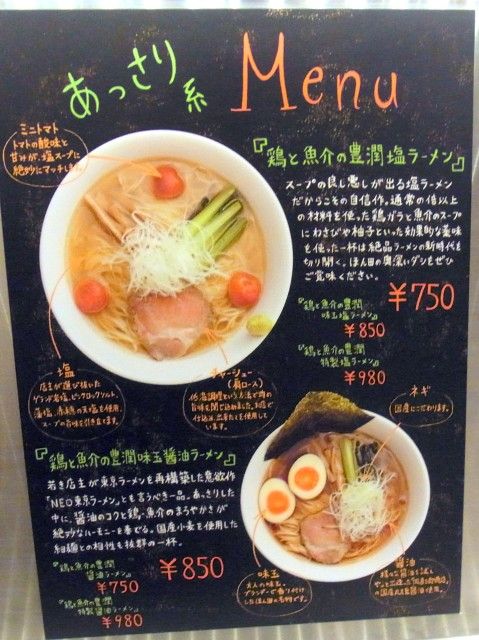 あっさり系 Menu
ミニトマト
トマトの酸味と
甘みが、塩スープに
絶妙にマッチしました。
『鶏と魚介の豊潤塩ラーメン』
スープの良し悪しが出る塩ラーメン
だからこその自信作。通常の倍以上
の材料を使った鶏ガラと魚介のスープ
にわさびや柚子といった効果的な薬味
を使った一杯は絶品ラーメンの新時代を
切り開く。ほん田の奥深いダシをぜひ
ご賞味ください。
¥750
鶏と魚介の豊潤
味玉塩ラーメン
¥850
鶏と魚介の豊潤
特製塩ラーメン
¥980
塩
店主が選び抜いた
スープの旨味を引き立たす。
チャーシュー
(肩ロース)
ネギ
国産にこだわります。
『鶏と魚介の豊潤味玉醤油ラーメン』
若き店主が東京ラーメンを再構築した意欲作
「NEO東京ラーメン」とも言うべき一品。あっさりした
中に、醤油のコクと鶏・魚介のまろやかさが
絶妙なハーモニーを奏でる。国産小麦を使用した
細麺との相性も抜群の一杯。
¥850
鶏と魚介の豊潤
醤油ラーメン
¥750
鶏と魚介の豊潤
特製醤油ラーメン
¥980
味玉
醤油